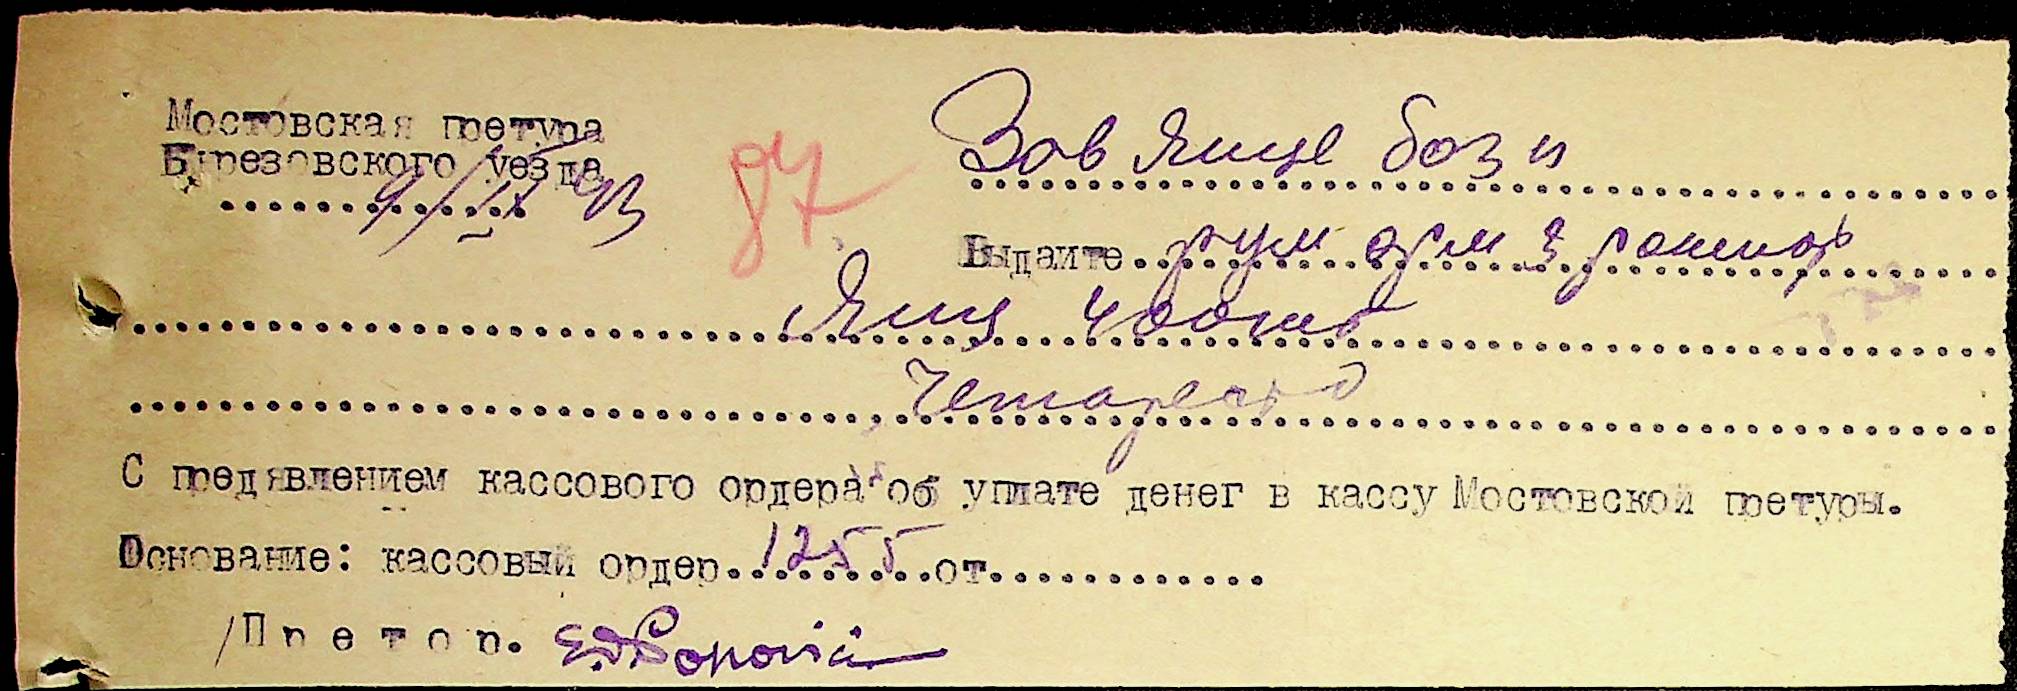 Мостовская претура
Березовского уезда
9/IX 43
87
Зав Яице базы
Выдайте рум арм
Яиц 400 шт
Четареста
С предявлением кассового ордера об уплате денег в кассу Мостовской претуры.
Основание: кассовый ордер 1255 от
Претор.